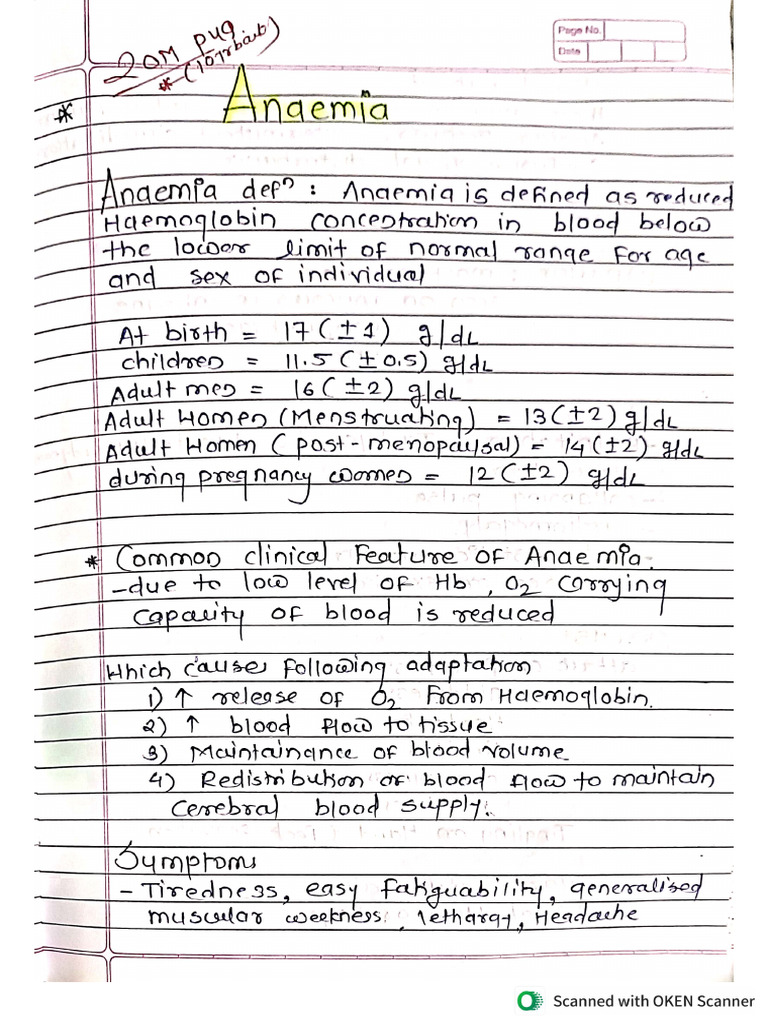 20M PYQ
* (10 मार्कs)
Page No.
Date
* Anaemia
Anaemia defn : Anaemia is defined as reduced
Haemoglobin concentration in blood below
the lower limit of normal range for age
and sex of individual
At birth = 17 (± 1) g/dL
children = 11.5 (± 0.5) g/dL
Adult men = 16 (± 2) g/dL
Adult Women (Menstruating) = 13 (± 2) g/dL
Adult Women (post-menopausal) = 14 (± 2) g/dL
during pregnancy women = 12 (± 2) g/dL
* Common clinical Feature of Anaemia.
- due to low level of Hb, O2 carrying
capacity of blood is reduced
Which causes following adaptation
1) ↑ release of O2 from Haemoglobin.
2) ↑ blood flow to tissue
3) Maintainance of blood volume
4) Redistribution of blood flow to maintain
cerebral blood supply.
Symptoms
- Tiredness, easy fatiguability, generalised
muscular weekness, lethargy, Headache
Scanned with OKEN Scanner